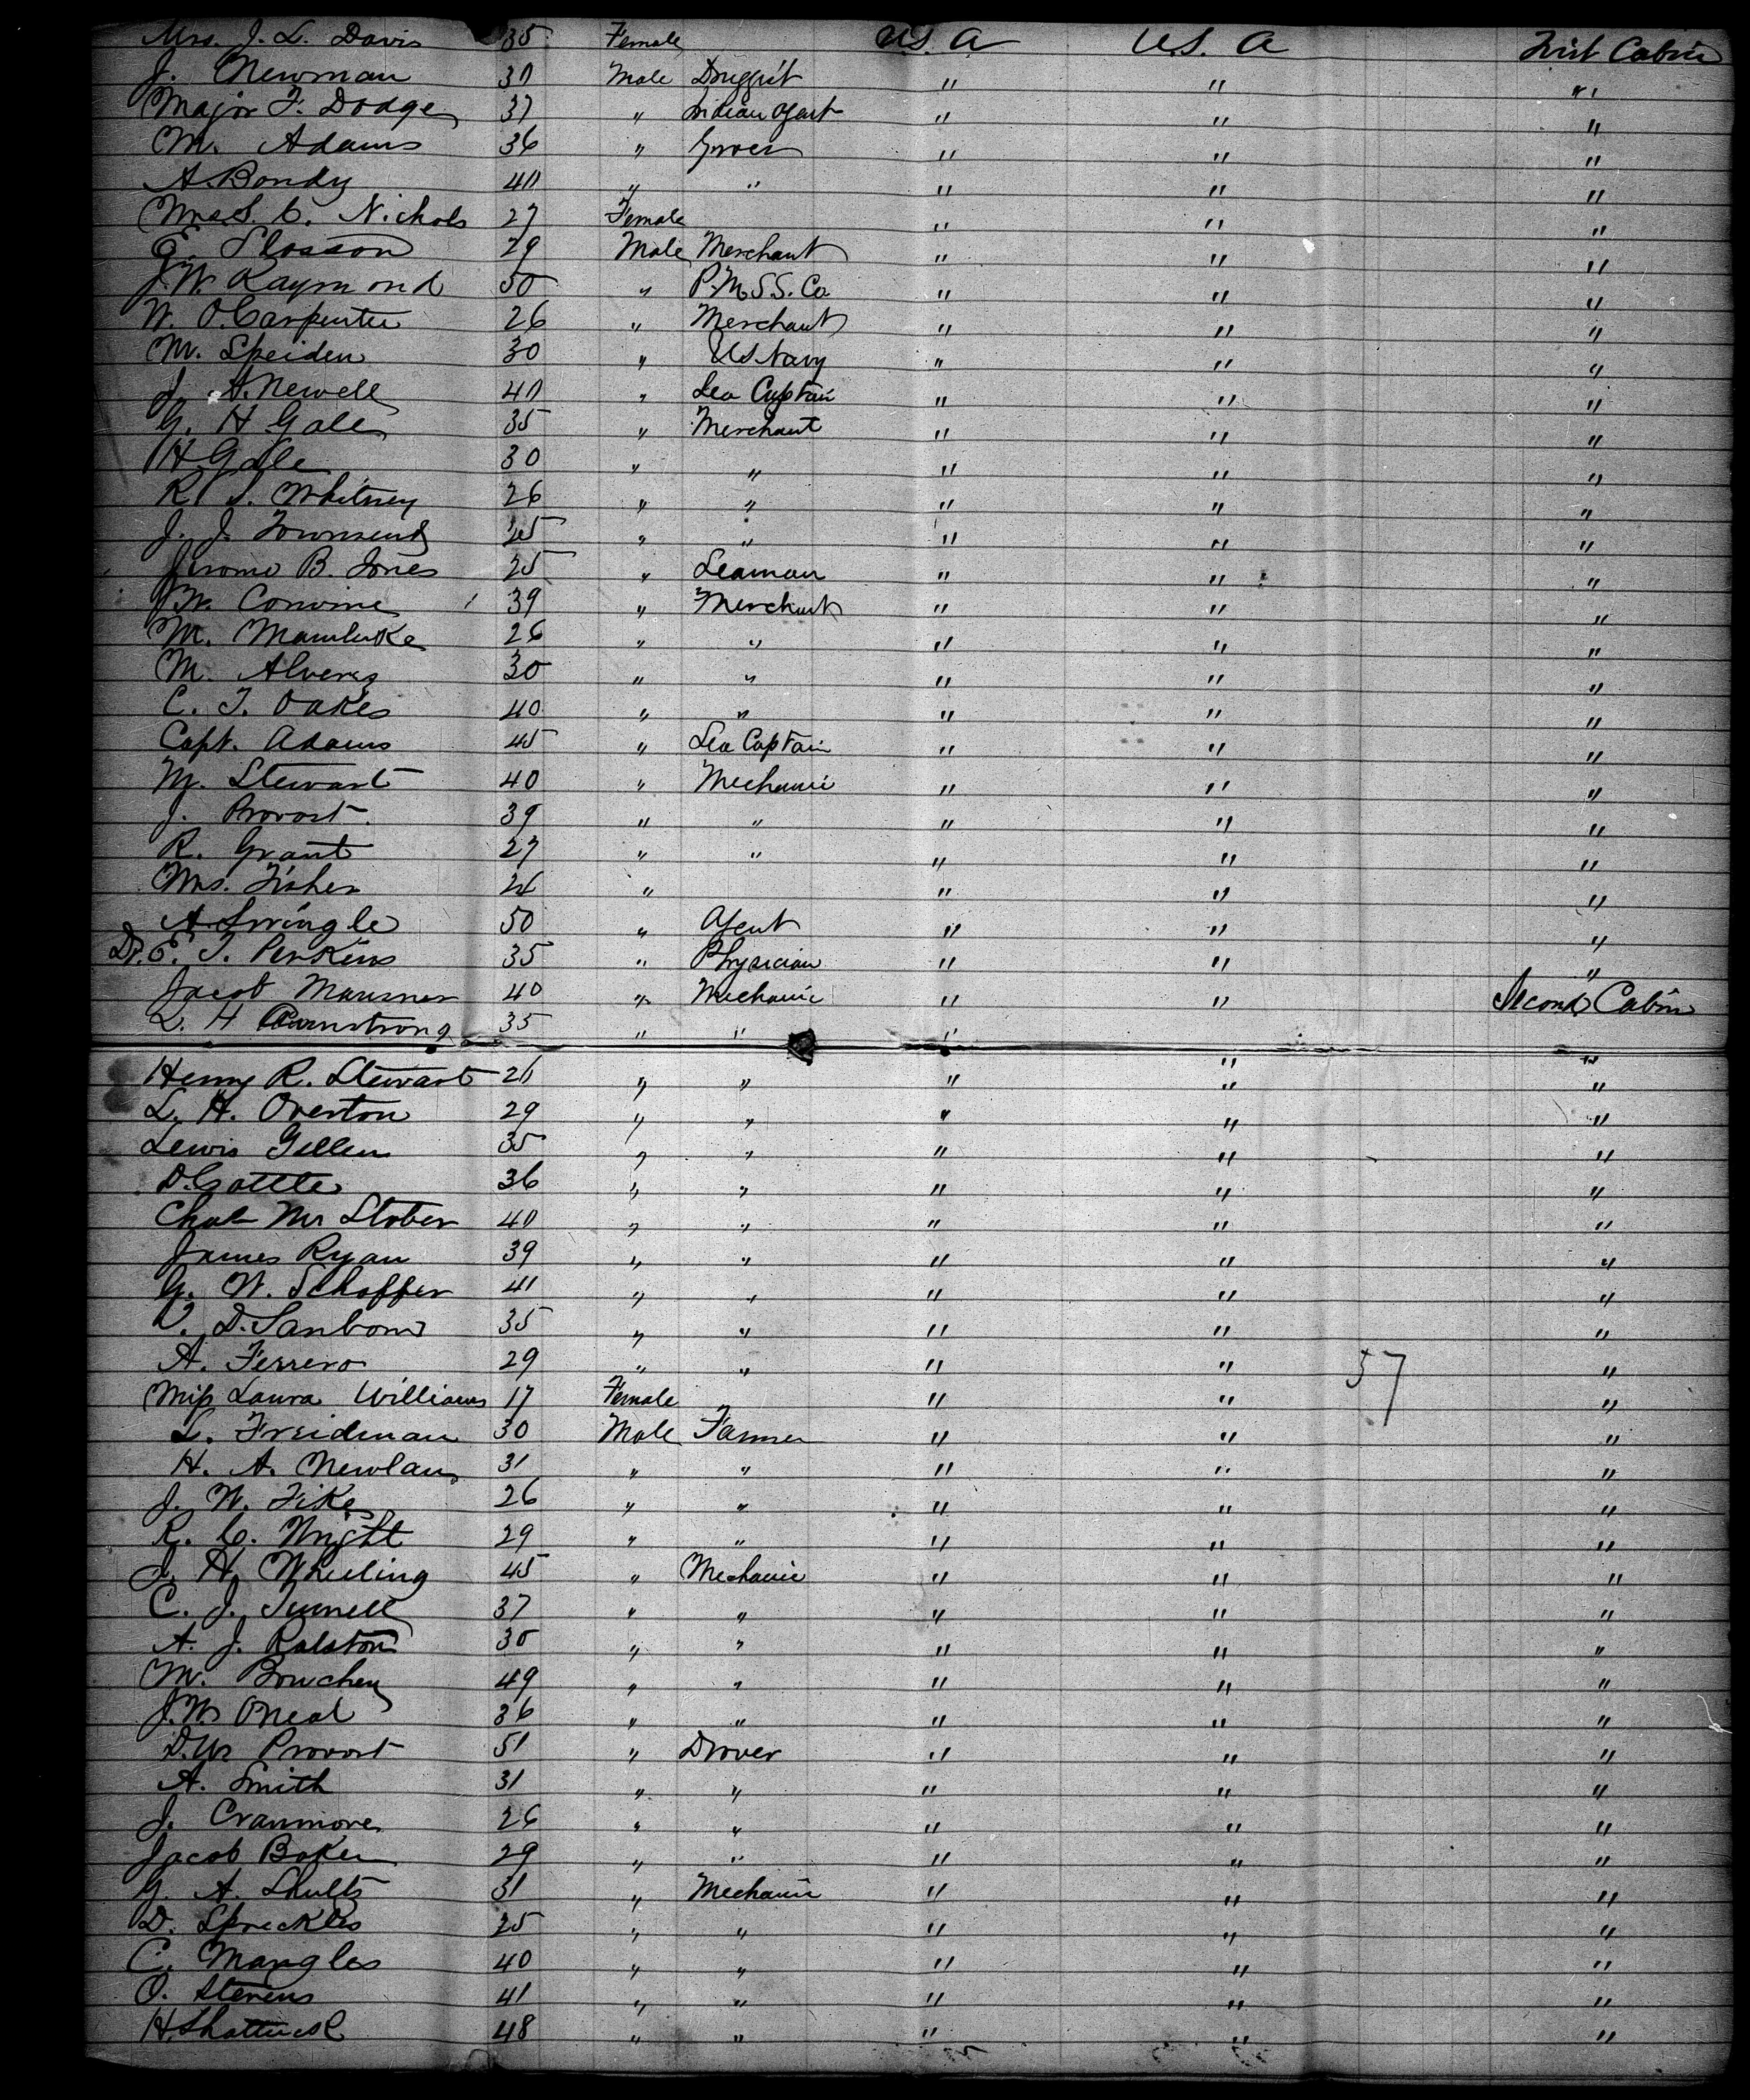 Mrs. J. L. Davis 35 Female U.S. A U.S. A First Cabin
J. Newman 30 Male Druggist " " "
Major F. Dodge 37 " Indian Agent " " "
M. Adams 36 " Grocer " " "
A. Bondy 40 " " " " "
Mrs S. C. Nichols 27 Female " " "
E. Slosson 29 Male Merchant " " "
J. W. Raymond 50 " P. M. S.S. Co " " "
W. O. Carpenter 26 " Merchant " " "
M. Speiden 30 " US Navy " " "
J. A. Newell 40 " Sea Captain " " "
G. H Gale 35 " Merchant " " "
H Gale 30 " " " " "
R. S. Whitney 26 " " " " "
J. J. Townsend " " " " "
Jerome B. Jones 25 " Seaman " " "
J. W. Convine 39 " Merchant " " "
M. Mamluke 26 " " " " "
M. Alveres 30 " " " " "
C. T. Oakes 40 " " " " "
Capt. Adams 45 " Sea Captain " " "
M. Stewart 40 " Mechanic " " "
J. Provost. 39 " " " " "
R. Grant 27 " " " " "
Mrs. Fisher 26 " " " "
A. Swingle 50 " Agent " " "
Dr. E. T. Perkins 35 " Physician " " "
Jacob 40 " Mechanic " " Second Cabin
L. H Armstrong 35 " " " " "
Henry R. Stewart 26 " " " " "
L. H. Overton 29 " " " " "
Lewis Gillen 35 " " " " "
D. Cottle 36 " " " " "
Chas M Stober 40 " " " " "
James Ryan 39 " " " " "
G. W. Schoffer 41 " " " " "
D. Sanborn 35 " " " " "
A. Ferrero 29 " " " " 57 "
Miss Laura Williams 17 Female " " "
L. Freidman 30 Male Farmer " " "
H. A. Newlan 31 " " " " "
J. W. Fike 26 " " " " "
R. C. Wright 29 " " " " "
J. H. Wheeling 45 " Mechanic " " "
C. J. 37 " " " " "
A. J. Ralston 30 " " " " "
M. Bowchey 49 " " " " "
J. W. ONeal 36 " " " " "
D. W Provost 51 " Drover " " "
A. Smith 31 " " " " "
J. Cranmore 26 " " " " "
Jacob Baker 29 " " " " "
G. A. Shults 31 " Mechanic " " "
D. Spreckles 25 " " " " "
C. Mangles 40 " " " " "
O. Stevens 41 " " " " "
H. Shattuck 48 " " " " "